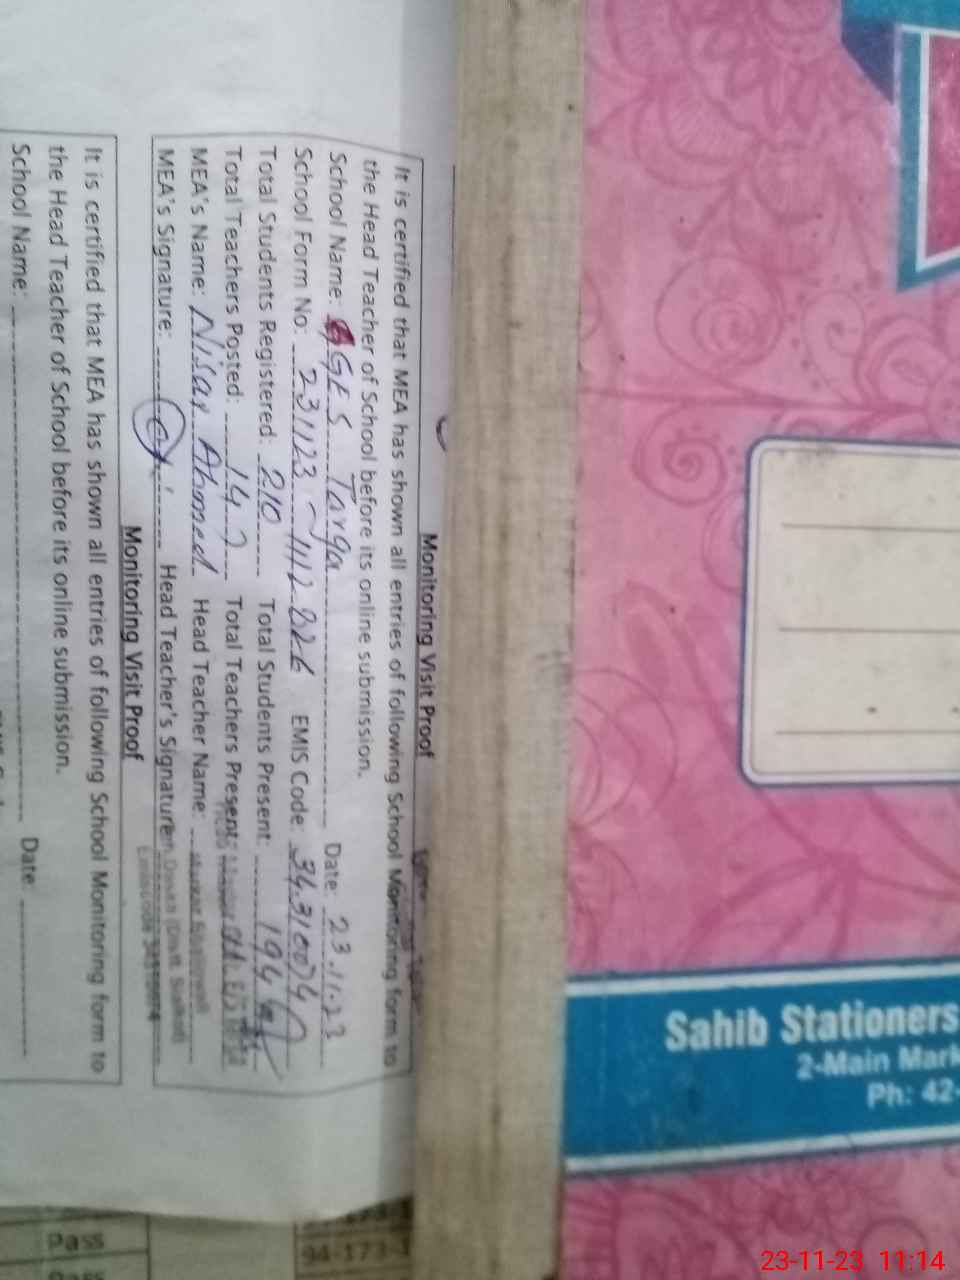 Monitoring Visit Proof
It is certified that MEA has shown all entries of following School Monitoring form to
the Head Teacher of School before its online submission.
School Name: GES Targa Date: 23.11.23
School Form No: 231123 EMIS Code: 34310074
Total Students Registered: 210 Total Students Present: 194
Total Teachers Posted: 14 Total Teachers Present:
MEA's Name: Nisar Ahmed Head Teacher Name:
MEA's Signature: Head Teacher's Signature
Monitoring Visit Proof
It is certified that MEA has shown all entries of following School Monitoring form to
the Head Teacher of School before its online submission.
School Name: Date:
Sahib Stationers
2-Main Mark
Ph: 42-
Pass
94-173-
23-11-23 11:14